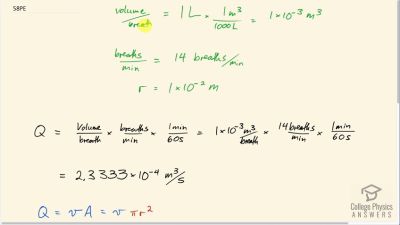 58PE
volume/breath = 1L × 1m³/1000L = 1×10⁻³ m³
breaths/min = 14 breaths/min
r = 1×10⁻² m
Q = volume/breath × breaths/min × 1min/60s = 1×10⁻³ m³/breath × 14 breaths/min × 1min/60s
= 2.3333×10⁻⁴ m³/s
Q = vA = v πr²
College Physics
ANSWERS